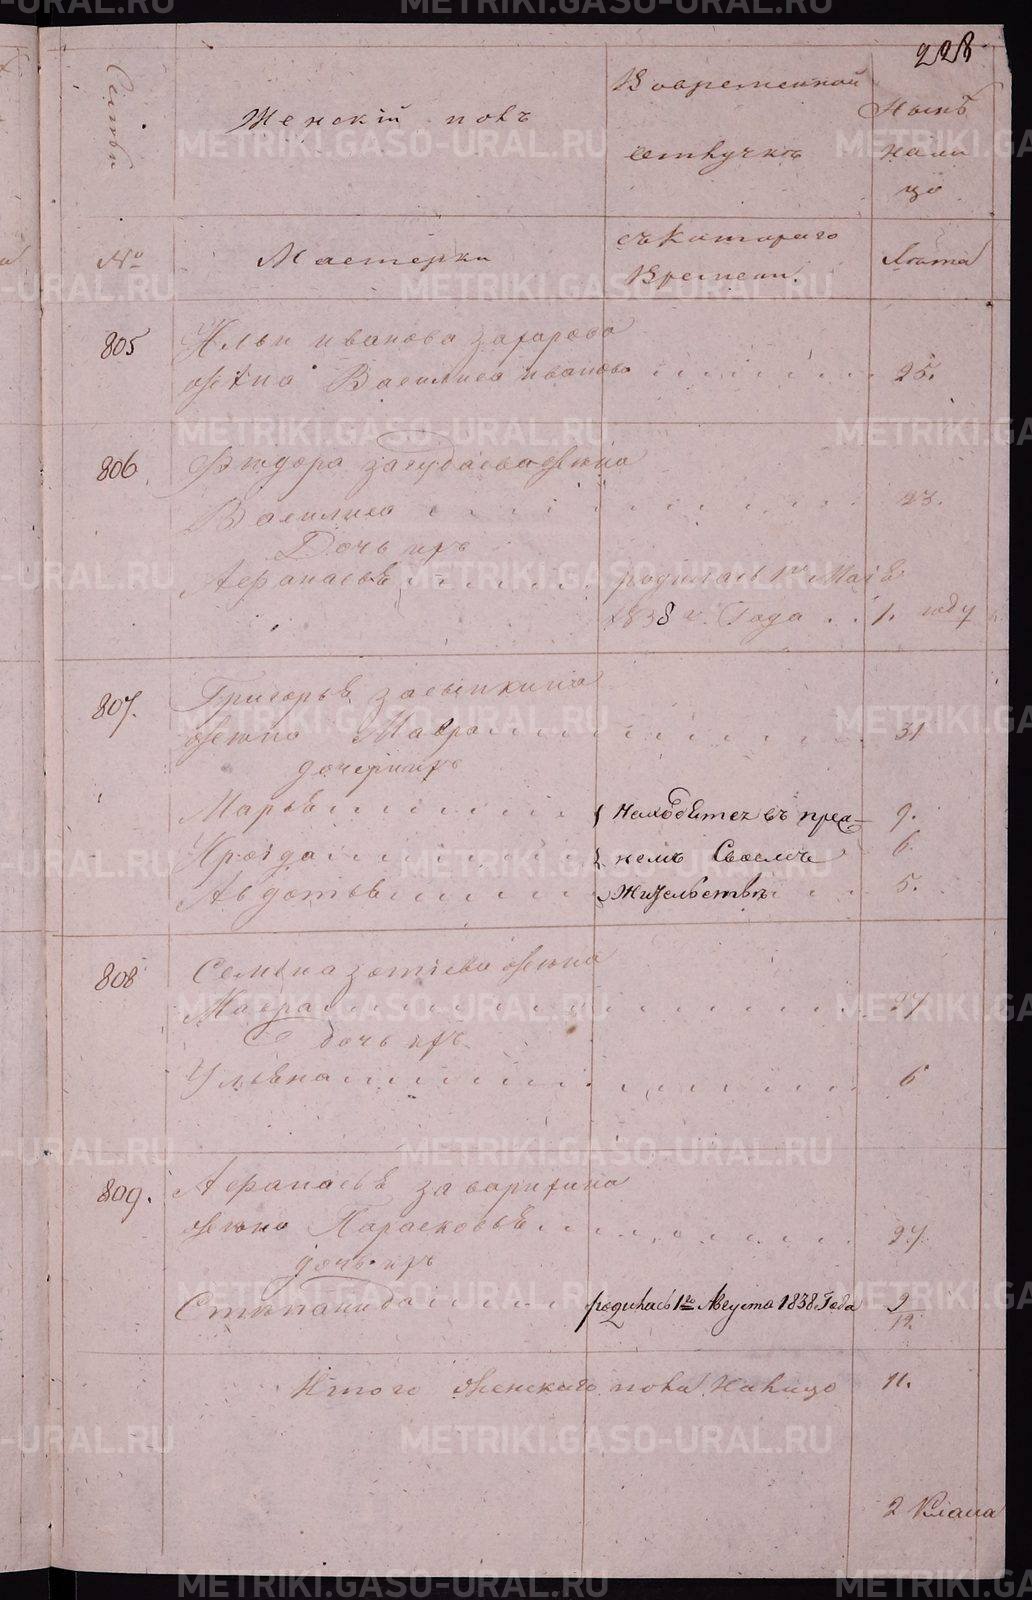 228
Семьи
Женскій полъ
Вовременной
отлучкѣ
Нынѣ
нали
цо
№
Мастерки
съкотораго
Времени
Лѣта
805
Ильи иванова захарова
жена Василиса иванова
25.
806
Федора загубаева жена
Василиса
23.
Дочь ихъ
Афанасья
родилась 1го Маія
1838 г. Года
1. году
807.
Григорья засыпкина
жена Мавра
31
дочери ихъ
Марья
Находятся въ преж
9.
Ироида
немъ Своемъ
6.
Авдотья
Жительствѣ
5.
808
Семена зотѣева жена
Мавра
27
дочь ихъ
Ульяна
6
809.
Афанасья заварихина
жена Парасковья
27
дочь ихъ
Степанида
родилась 1го Августа 1838 Года
9/12
Итого женскаго пола Налицо
11.
2 Класа
METRIKI.GASO-URAL.RU